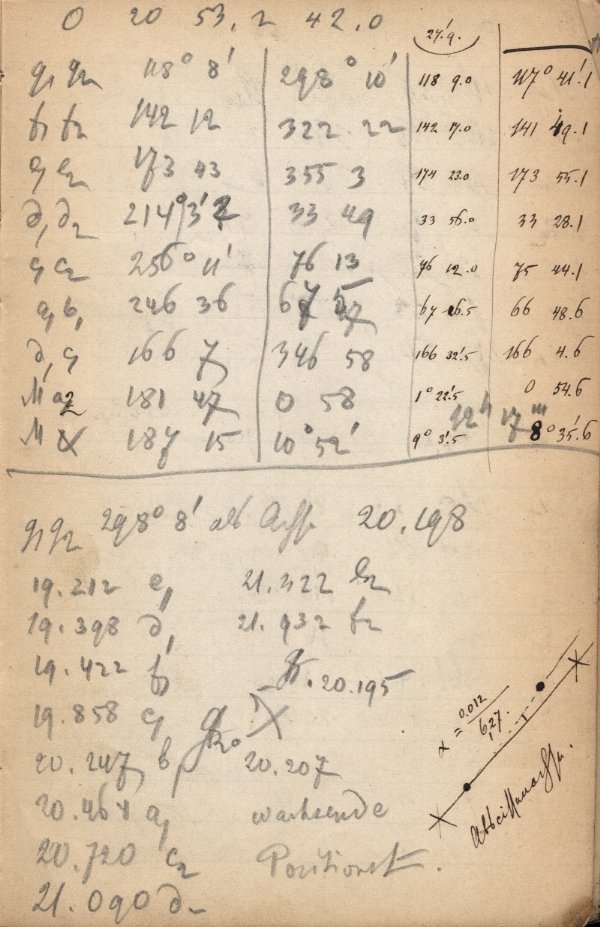 0 20 53.2 42.0
27.'9.
g₁ g₂ 118° 8' 298° 10' 118 9.0 117° 41.'1
f₁ f₂ 142 12 322 22 142 17.0 141 49.1
e₁ e₂ 173 43 355 3 174 23.0 173 55.1
d₁ d₂ 214° 3' 2 33 49 33 56.0 33 28.1
c₁ c₂ 256° 11' 76 13 76 12.0 75 44.1
a₁ b₁ 246 36 67 16.5 66 48.6
d₁ c₁ 166 7 346 58 166 32.'5 166 4.6
M a2 181 47 0 58 1° 22.'5 0 54.6
12ʰ 17ᵐ
M 187 15 10° 52' 9° 3.'5 8° 35.'6
g₁ g₂ 298° 8' als 20.198
19.212 e₁ 21.322
19.398 d₁ 21.932 f₂
19.422 f₁ 20.195
19.858 c₁
20.247 b₁ 20.207
20.464 a₁ wachsende
20.720 c₂ Positionst
21.090 d₂
α = 0.012 / 627.
Abscissenachse.